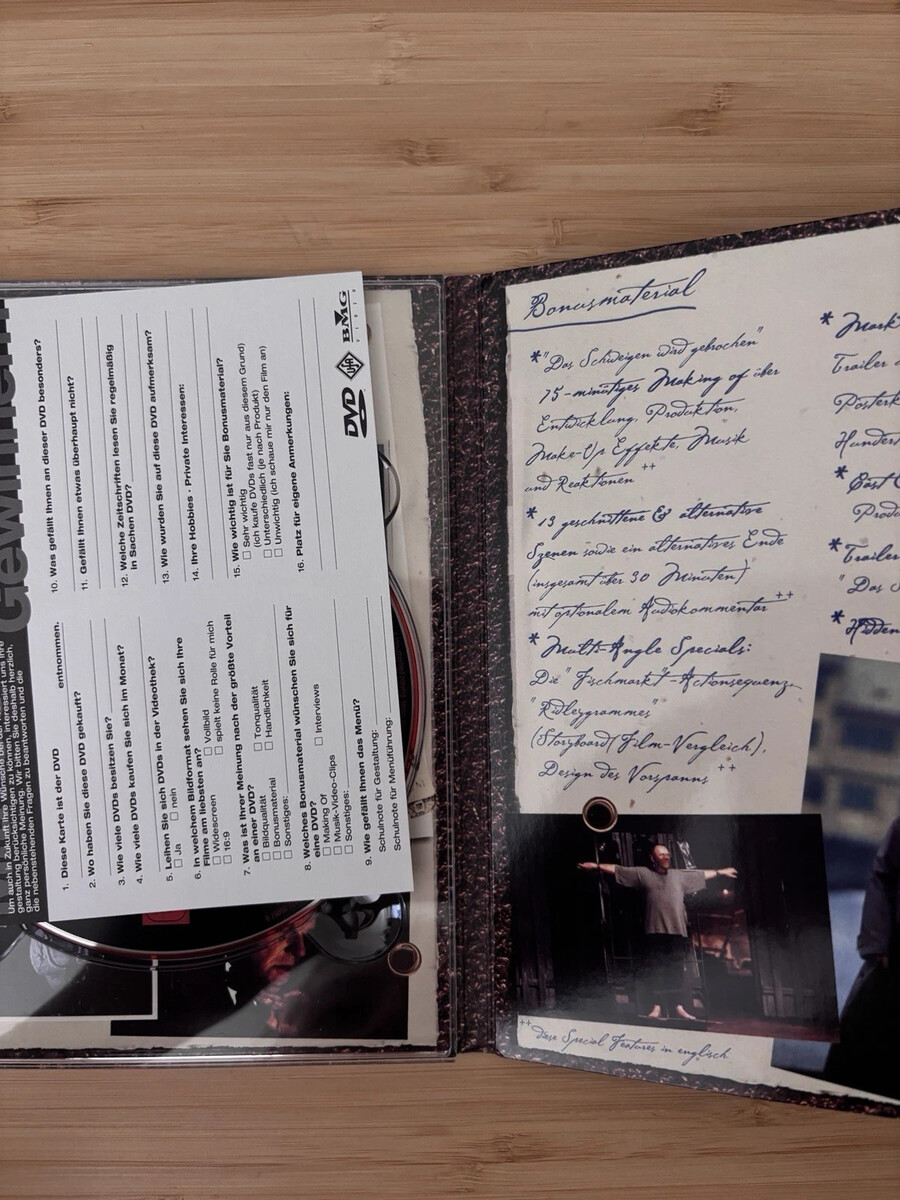 Um auch in Zukunft Ihre Wünsche bei der
gestaltung berücksichtigen zu können, interessiert uns Ihre
ganz persönliche Meinung. Wir bitten Sie deshalb herzlich,
die nebenstehenden Fragen zu beantworten und die
1. Diese Karte ist der DVD entnommen.
2. Wo haben Sie diese DVD gekauft?
3. Wie viele DVDs besitzen Sie?
4. Wie viele DVDs kaufen Sie sich im Monat?
5. Leihen Sie sich DVDs in der Videothek?
☐ Ja ☐ nein
6. In welchem Bildformat sehen Sie sich Ihre
Filme am liebsten an? ☐ Vollbild
☐ Widescreen ☐ spielt keine Rolle für mich
☐ 16:9
7. Was ist Ihrer Meinung nach der größte Vorteil
an einer DVD? ☐ Tonqualität
☐ Bildqualität ☐ Handlichkeit
☐ Bonusmaterial
☐ Sonstiges:
8. Welches Bonusmaterial wünschen Sie sich für
eine DVD? ☐ Interviews
☐ Making Of
☐ Musik-Video-Clips
☐ Sonstiges:
9. Wie gefällt Ihnen das Menü?
Schulnote für Gestaltung:
Schulnote für Menüführung:
10. Was gefällt Ihnen an dieser DVD besonders?
11. Gefällt Ihnen etwas überhaupt nicht?
12. Welche Zeitschriften lesen Sie regelmäßig
in Sachen DVD?
13. Wie wurden Sie auf diese DVD aufmerksam?
14. Ihre Hobbies · Private Interessen:
15. Wie wichtig ist für Sie Bonusmaterial?
☐ Sehr wichtig
(ich kaufe DVDs fast nur aus diesem Grund)
☐ Unterschiedlich (je nach Produkt)
☐ Unwichtig (ich schaue mir nur den Film an)
16. Platz für eigene Anmerkungen:
DVD
Ufa
BMG
VIDEO
Bonusmaterial
* "Das Schweigen wird gebrochen"
75-minütiges Making of über
Entwicklung, Produktion,
Make-Up Effekte, Musik
und Reaktionen ++
* 13 geschnittene & alternative
Szenen sowie ein alternatives Ende
(insgesamt über 30 Minuten)
mit optionalem Audiokommentar ++
* Multi-Angle Specials:
Die "Fischmarkt"-Actionsequenz,
"Ridleygrammes"
(Storyboard/Film-Vergleich),
Design des Vorspanns ++
++ diese Special Features in englisch
* Mark
Trailer
Posterk
Hundert
* Cast
Produ
* Trailer
"Das S
* Hidden